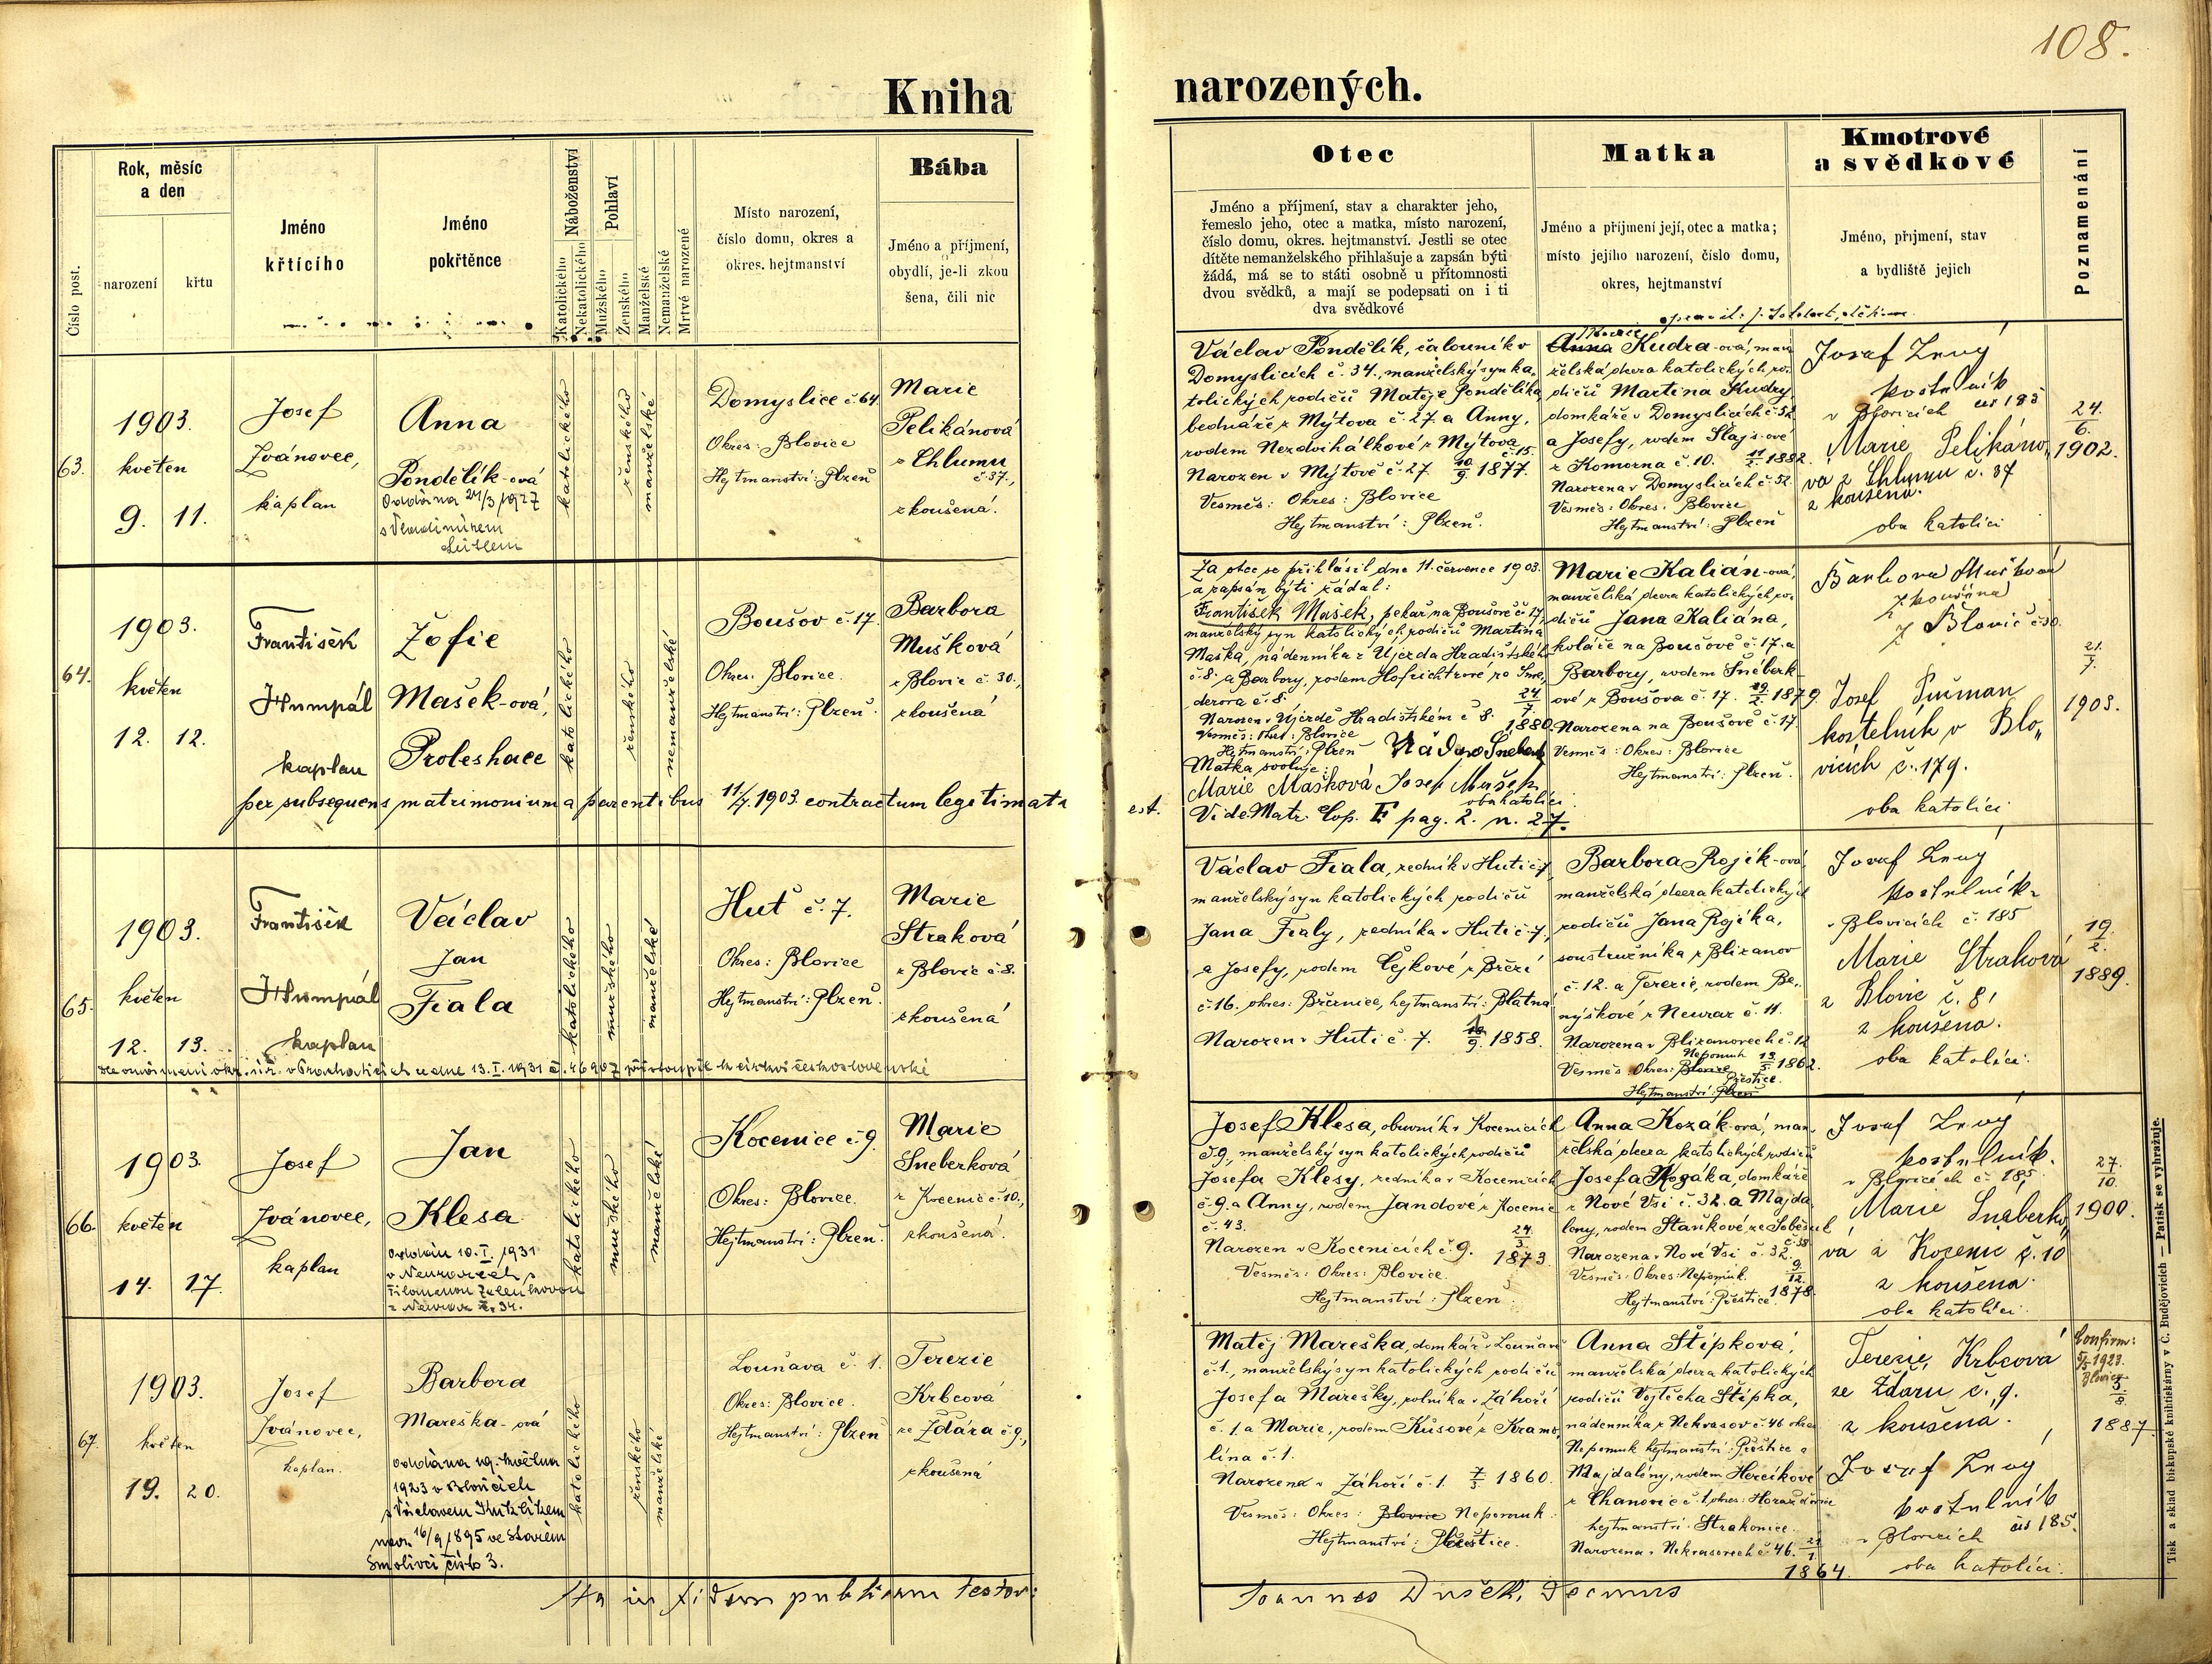 108.
Kniha narozených.
Číslo post.
Rok, měsíc
a den
narození
křtu
Jméno
křtícího
Jméno
pokřtěnce
Náboženství
Katolického
Nekatolického
Pohlaví
Mužského
Ženského
Manželské
Nemanželské
Mrtvé narozené
Místo narození,
číslo domu, okres a
okres. hejtmanství
Bába
Jméno a příjmení,
obydlí, je-li zkou
šena, čili nic
Otec
Jméno a příjmení, stav a charakter jeho,
řemeslo jeho, otec a matka, místo narození,
číslo domu, okres. hejtmanství. Jestli se otec
dítěte nemanželského přihlašuje a zapsán býti
žádá, má se to státi osobně u přítomnosti
dvou svědků, a mají se podepsati on i ti
dva svědkové
Matka
Jméno a příjmení její, otec a matka;
místo jejího narození, číslo domu,
okres, hejtmanství
Kmotrové
a svědkové
Jméno, příjmení, stav
a bydliště jejich
Poznamenání
63.
1903.
květen
9. 11.
Josef
Ivánovec,
kaplan
Anna
Pondělík-ová
Oddána 21/3 1927
s Vladimírem
katolického
ženského
manželské
Domyslice č 64
Okres: Blovice
Hejtmanství: Plzeň
Marie
Pelikánová
z Chlumu
č 37.,
zkoušená.
Václav Pondělík, čalouník v
Domyslicích č. 34., manželský syn ka-
tolických rodičů Matěje Pondělíka
bednáře z Mýtova č. 27. a Anny,
rodem Nezdvihálkové z Mýtova
č. 15.
Narozen v Mýtově č. 27 10/9. 1877.
Vesměs: Okres: Blovice
Hejtmanství: Plzeň.
Marie
Anna Kudra-ová, man
želská dcera katolických ro-
dičů Martina Kudry
domkáře v Domyslicích č. 52.
a Josefy, rodem Šlajs-ové
z Komorna č. 10. 11/2. 1882.
Narozena v Domyslicích č. 52.
Vesměs: Okres: Blovice
Hejtmanství: Plzeň
Josef Levý
kostelník
v Blovicích čís 185
Marie Pelikáno,
vá z Chlumu č. 37
zkoušena.
oba katolíci
24.
6.
1902.
64.
1903.
květen
12. 12.
František
Humpál
kaplan
Žofie
Mašek-ová,
Proleshace
katolického
ženského
nemanželské
Boušov č. 17.
Okres: Blovice.
Hejtmanství: Plzeň.
Barbora
Mušková
z Blovic č. 30.,
zkoušená
per subsequens matrimonium a parentibus 11/7. 1903. contractum legitimata
est. Vide Matr. Cop. F pag. 2. n. 27.
Za otce se přihlásil dne 11. července 1903.
a zapsán býti žádal:
František Mašek, pekař na Boušově č. 17,
manželský syn katolických rodičů Martina
Maška, nádenníka z Újezda Hradišťského
č. 8. a Barbory, rodem Hofrichtrové ze Sme,
derova č. 8.
Narozen v Újezdě Hradišťském č 8. 24/7. 1880.
Vesměs: Okres: Blovice
Hejtmanství: Plzeň
Matka svoluje:
Marie Mašková Josef Mušek
oba katolíci
Marie Kalián-ová,
manželská dcera katolických ro-
dičů Jana Kaliána,
koláře na Boušově č. 17. a
Barbory, rodem Šneberk-
ové z Boušova č. 17. 1879.
Narozena na Boušově č. 17.
Vesměs: Okres: Blovice
Hejtmanství: Plzeň.
Barbora Mušková
zkoušená
z Blovic č 30.
Josef Pucman
kostelník v Blo„
vicích č. 179.
oba katolíci
21.
7.
1903.
65.
1903.
květen
12. 13.
František
Humpál
kaplan
Václav
Jan
Fiala
katolického
mužského
manželské
Huť č. 7.
Okres: Blovice
Hejtmanství: Plzeň.
Marie
Straková
z Blovic č. 8.
zkoušená
Dle oznámení okr. úř. v Prachaticích ze dne 13. I. 1931 č. 46907 přistoupil k církvi československé
Václav Fiala, zedník v Huti č. 7,
manželský syn katolických rodičů
Jana Fialy, zedníka v Huti č. 7,
a Josefy, rodem Čejkové z Březí
č. 16. okres: Březnice, hejtmanství: Blatná
Narozen v Huti č. 7. 1858.
Barbora Rojík-ová
manželská dcera katolických
rodičů Jana Rojíka,
soustružníka z Blizanov
č. 12. a Terezie, rodem Be„
nýškové z Neuraz č. 11.
Narozena v Blizanovech č. 12
Nepomuk 13/5. 1862.
Vesměs Okres: Blovice
Přeštice.
Hejtmanství: Plzeň
Josef Levý
kostelník
v Blovicích č. 185
Marie Straková
z Blovic č. 8,
zkoušena.
oba katolíci:
19.
2.
1889.
66.
1903.
květen
14. 17.
Josef
Ivánovec,
kaplan
Jan
Klesa
oddán 10. I. 1931
v Neurazech s
Filomenou Zelenkovou
z Neuraz č. 34.
katolického
mužského
manželské
Kocenice č 9.
Okres: Blovice.
Hejtmanství: Plzeň.
Marie
Šneberková
z Kocenic č. 10.,
zkoušená.
Josef Klesa, obuvník v Kocenicích
č. 9., manželský syn katolických rodičů
Josefa Klesy, zedníka v Kocenicích
č. 9. a Anny, rodem Jandové z Kocenic
č. 43.
Narozen v Kocenicích č. 9. 24/3. 1873.
Vesměs: Okres: Blovice.
Hejtmanství: Plzeň
Anna Kozák-ová, man-
želská dcera katolických rodičů
Josefa Kozáka, domkáře
z Nové Vsi č. 32. a Majda
leny, rodem Staňkové ze Soběsuk
č. 38
Narozena v Nové Vsi č. 32. 9/12. 1878.
Vesměs: Okres: Nepomuk.
Hejtmanství: Přeštice
Josef Levý
kostelník.
v Blovicích č. 185,
Marie Šneberko„
vá z Kocenic č. 10
zkoušena.
oba katolíci
27.
10.
1900.
67.
1903.
květen
19. 20.
Josef
Ivánovec,
kaplan.
Barbora
Mareška-ová
oddána 19. května
1923 v Blovicích
s Václavem
nar. 16/9 1895 ve Starém
Smolivci číslo 3.
katolického
ženského
manželské
Louňava č. 1.
Okres: Blovice.
Hejtmanství: Plzeň
Terezie
Krbcová
ze Ždára č. 9.,
zkoušená
Matěj Mareška, domkář v Louňavě
č. 1., manželský syn katolických rodičů
Josefa Marešky, rolníka v Záhoří
č. 1. a Marie, rodem Kůsové z Kramo„
lína č. 1.
Narozena v Záhoří č. 1. 1860.
Vesměs: Okres: Blovice Nepomuk.
Hejtmanství: Přeštice.
Anna Štípková,
manželská dcera katolických
rodičů Vojtěcha Štípka,
nádenníka z Nekvasov č. 46 okres
Nepomuk hejtmanství: Přeštice a
Majdalény, rodem Hercíkové
z Chanovic č. 1 okres: Horažďovice
hejtmanství: Strakonice.
Narozena v Nekvasovech č. 46.
1864.
Terezie Krbcová
ze Ždáru č. 9.
zkoušena.
Josef Levý
kostelník
v Blovicích čís 185.
oba katolíci.
Confirm:
1923.
Blovice
3.
8.
1887.
Ita in fidem publicam testor:
Joannes Dušek, Decanus
Tisk a sklad biskupské knihtiskárny v Č. Budějovicích — Patisk se vyhražuje.